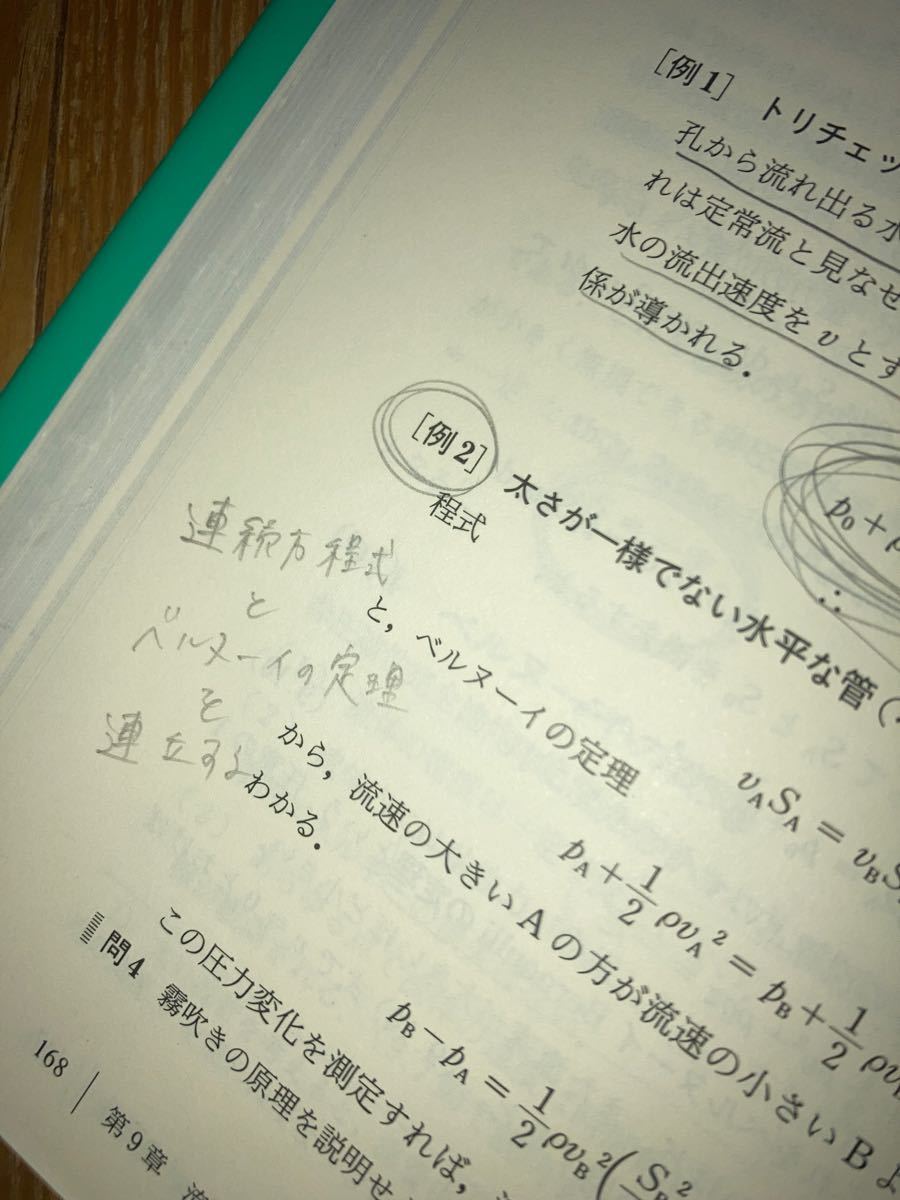 [例1] トリチェッ
孔から流れ出る水
れは定常流と見なせ
水の流出速度を v とす
係が導かれる.
p₀ +
∴
[例2] 太さが一様でない水平な管(
程式
v_A S_A = v_B S
と, ベルヌーイの定理
p_A + 1/2 ρv_A² = p_B + 1/2 ρv
から, 流速の大きい A の方が流速の小さい B よ
わかる.
p_B − p_A = 1/2 ρv_B² (S_B²
この圧力変化を測定すれば,
問4 霧吹きの原理を説明せ
168 第9章
連続方程式
と
ベルヌーイの定理
を
連立する